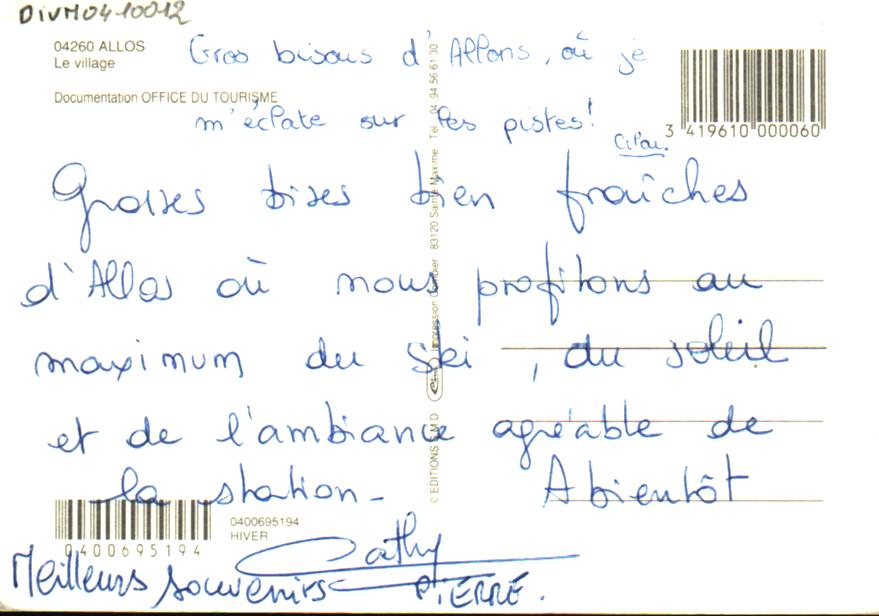 DIVM0410012
04260 ALLOS
Le village
Documentation OFFICE DU TOURISME
Gros bisous d'Allons, où je
m'éclate sur les pistes!
3 419610 000060
Grosses bises bien fraîches
d'Allos où nous profitons au
maximum du ski, du soleil
et de l'ambiance agréable de
la station- A bientôt
0400695194
HIVER
0400695194
Cathy
Meilleurs souvenirs PIERRE.
© EDITIONS
83120 Sainte Maxime Tél. 04 94 56 61 30